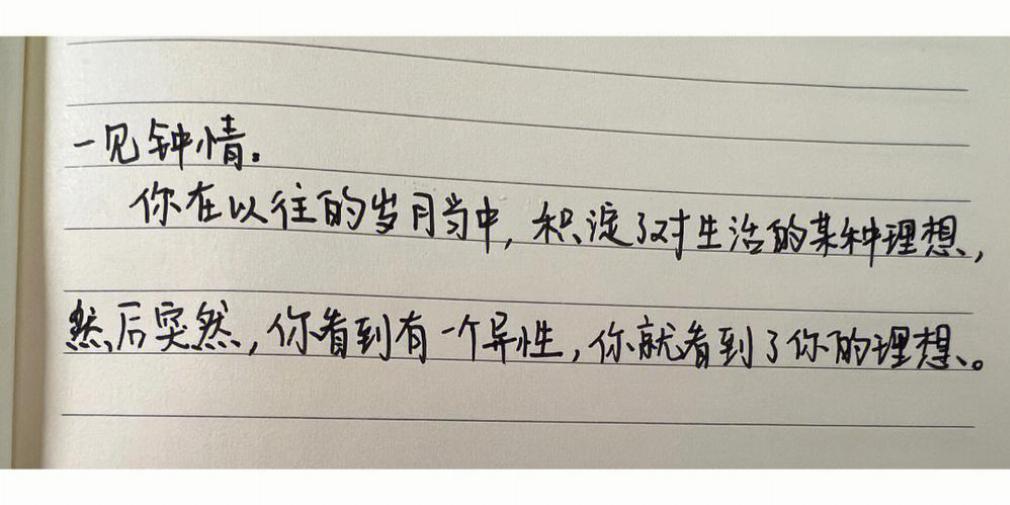 一见钟情。
你在以往的岁月当中,积淀了对生活的某种理想,
然后突然,你看到有一个异性,你就看到了你的理想。